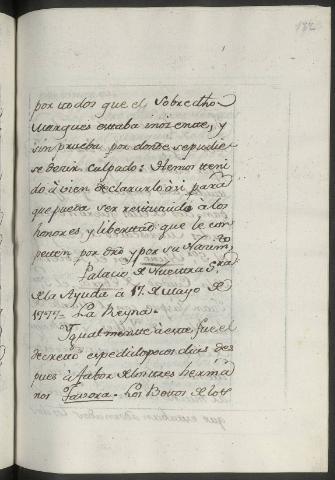 182
por todos que el Sobredho
Marques estaba inozente, y
sin prueba por donde se pudie-
se dezir culpado: Hemos teni
do à vien declararlo asi para
que pueda ser restituido à los
honores y libertad que le com
peten por dro y por su Nacim.to
Palacio de Nuestra S.ra
de la Ayuda à 17. de Mayo de
1777= La Reyna.
Igualmente à este fue el
decreto expedido pocos dias des
pues à fabor de los tres herma
nos Tavora. Los Botos de los